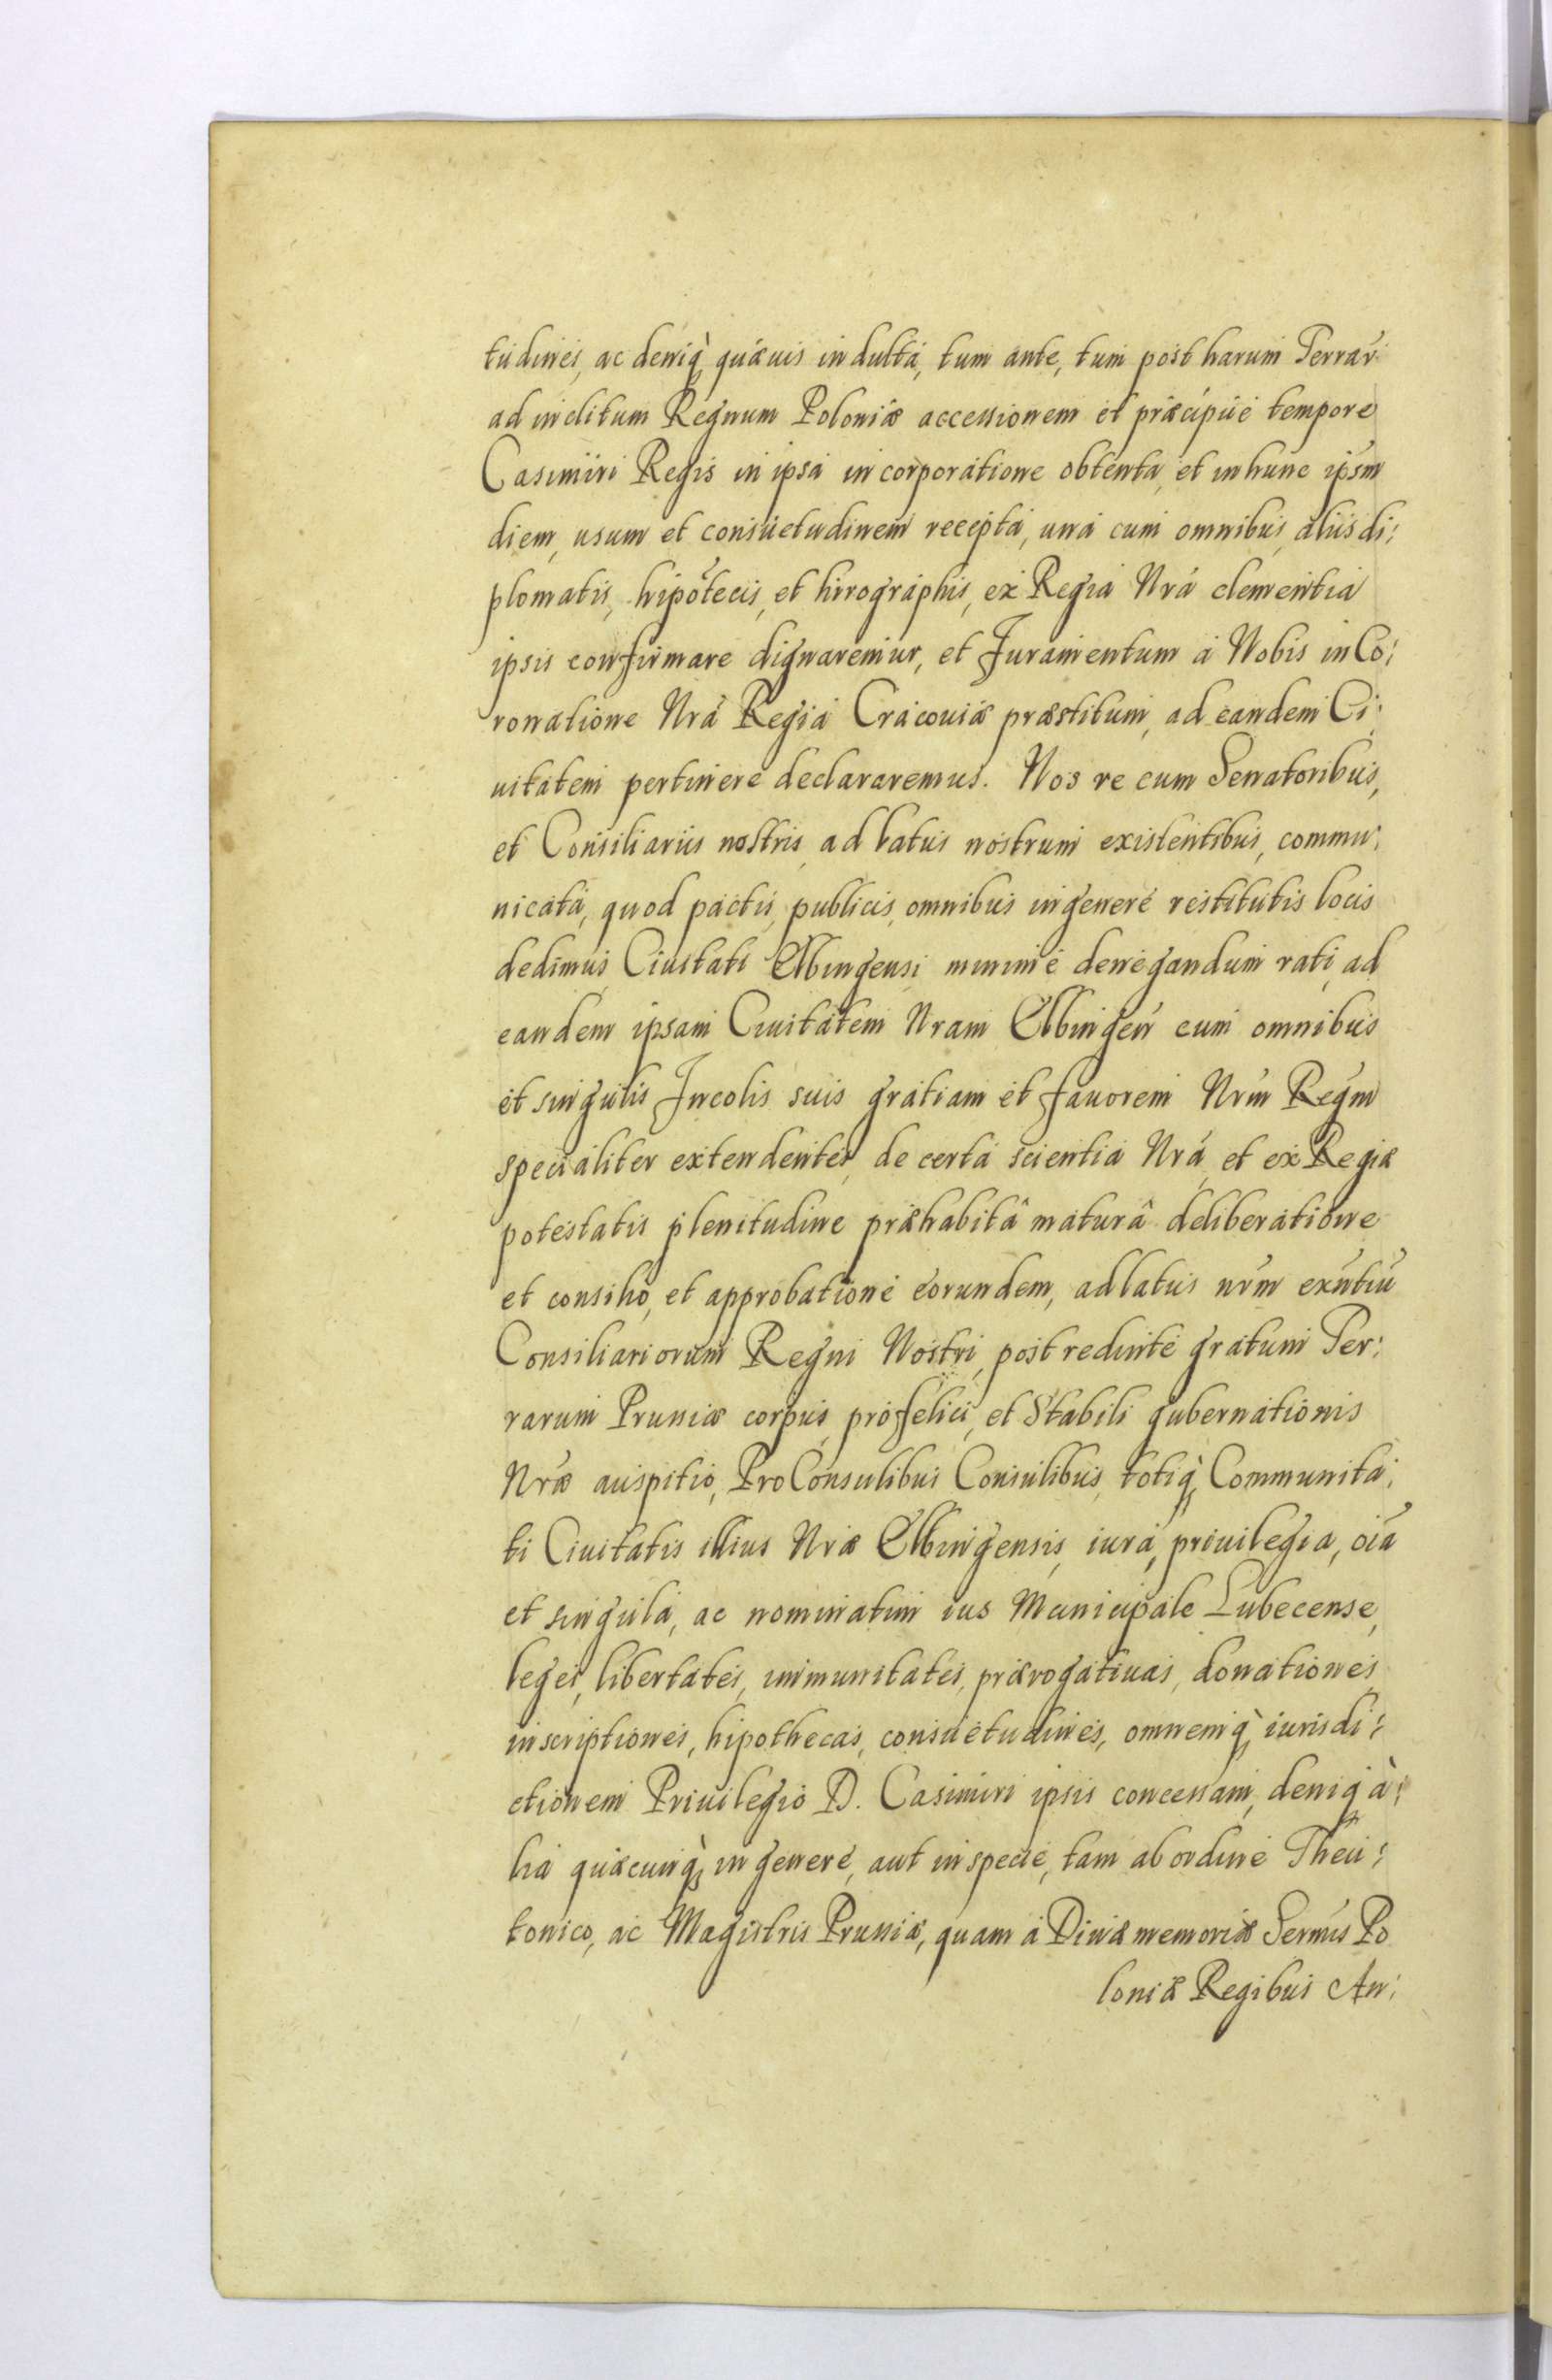 tudines, ac deniq, quæuis indulta, tum ante, tum post harum Terrar:
ad inclitum Regnum Poloniæ accessionem et præcipüe tempore
Casimiri Regis in ipsa incorporatione obtenta, et in hunc ipsm
diem, usum et consuetudinem recepta, una cum omnibus aliis di:
plomatis, hipotecis, et hirographis, ex Regia Nrá clementia
ipsis confirmare dignaremur, et Juramentum á Nobis in Co:
ronatione Nrá Regia Cracouiæ præstitum, ad eandem Ci:
uitatem pertinere declararemus. Nos re cum Senatoribus,
et Consiliariis nostris, ad latus nostrum existentibus, commu:
nicata, quod pactis, publicis, omnibus in genere restitutis locis
dedimus, Ciuitati Elbingensi minimé denegandum rati, ad
eandem ipsam Ciuitatem Nram Elbingeń cum omnibus
et singulis Incolis suis gratiam et fauorem Nrḿ Regm
specialiter extendentes, de certa scientia Nrá, et ex Regiæ
potestatis plenitudine præhabitâ maturâ deliberatione
et consilio, et approbatione eorundem, ad latus nrḿ exńtiú
Consiliariorum Regni Nostri, post redinte gratum Ter:
rarum Prussiæ corpus, pro felici, et Stabili gubernationis
Nræ auspitio, ProConsulibus Consulibus, totiq, Communita:
ti Ciuitatis illius Nræ Elbingensis, iura, priuilegia, oía
et singula, ac nominatim ius Municipale Lubecense,
leges, libertates, immunitates, prærogatiuas, donationes,
inscriptiones, hipothecas, consuetudines, omnemq, iurisdi:
ctionem Priuilegio D. Casimiri ipsis concessam, deniq à:
lia quæcunq, in genere, aut in specie, tam ab ordine Theu:
tonico, ac Magistris Prussiæ, quam á Diuæ memoriæ Sermís Po
loniæ Regibus An: